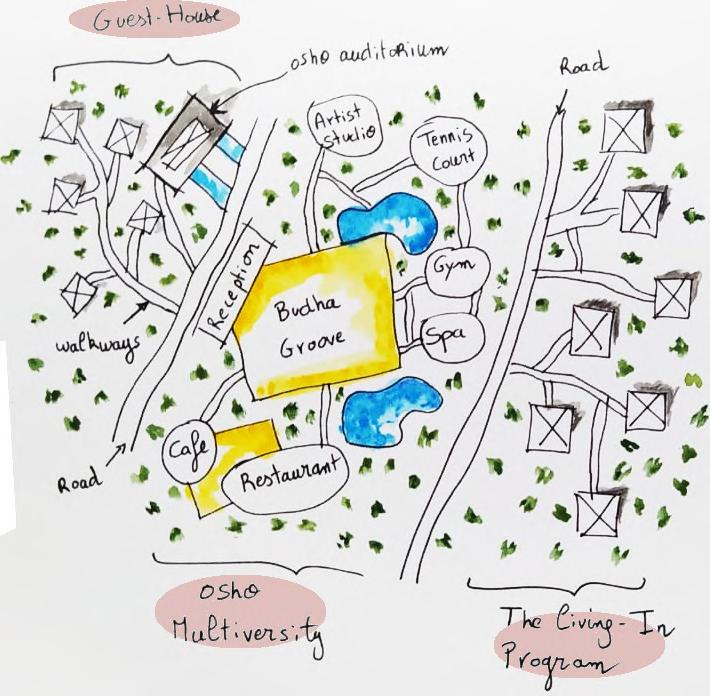 Guest-House
osho auditorium
Road
Artist
studio
Tennis
Court
Reception
Gym
Budha
Groove
Spa
walkways
Cafe
Restaurant
Road
OSHO
Multiversity
The Living-In
Program